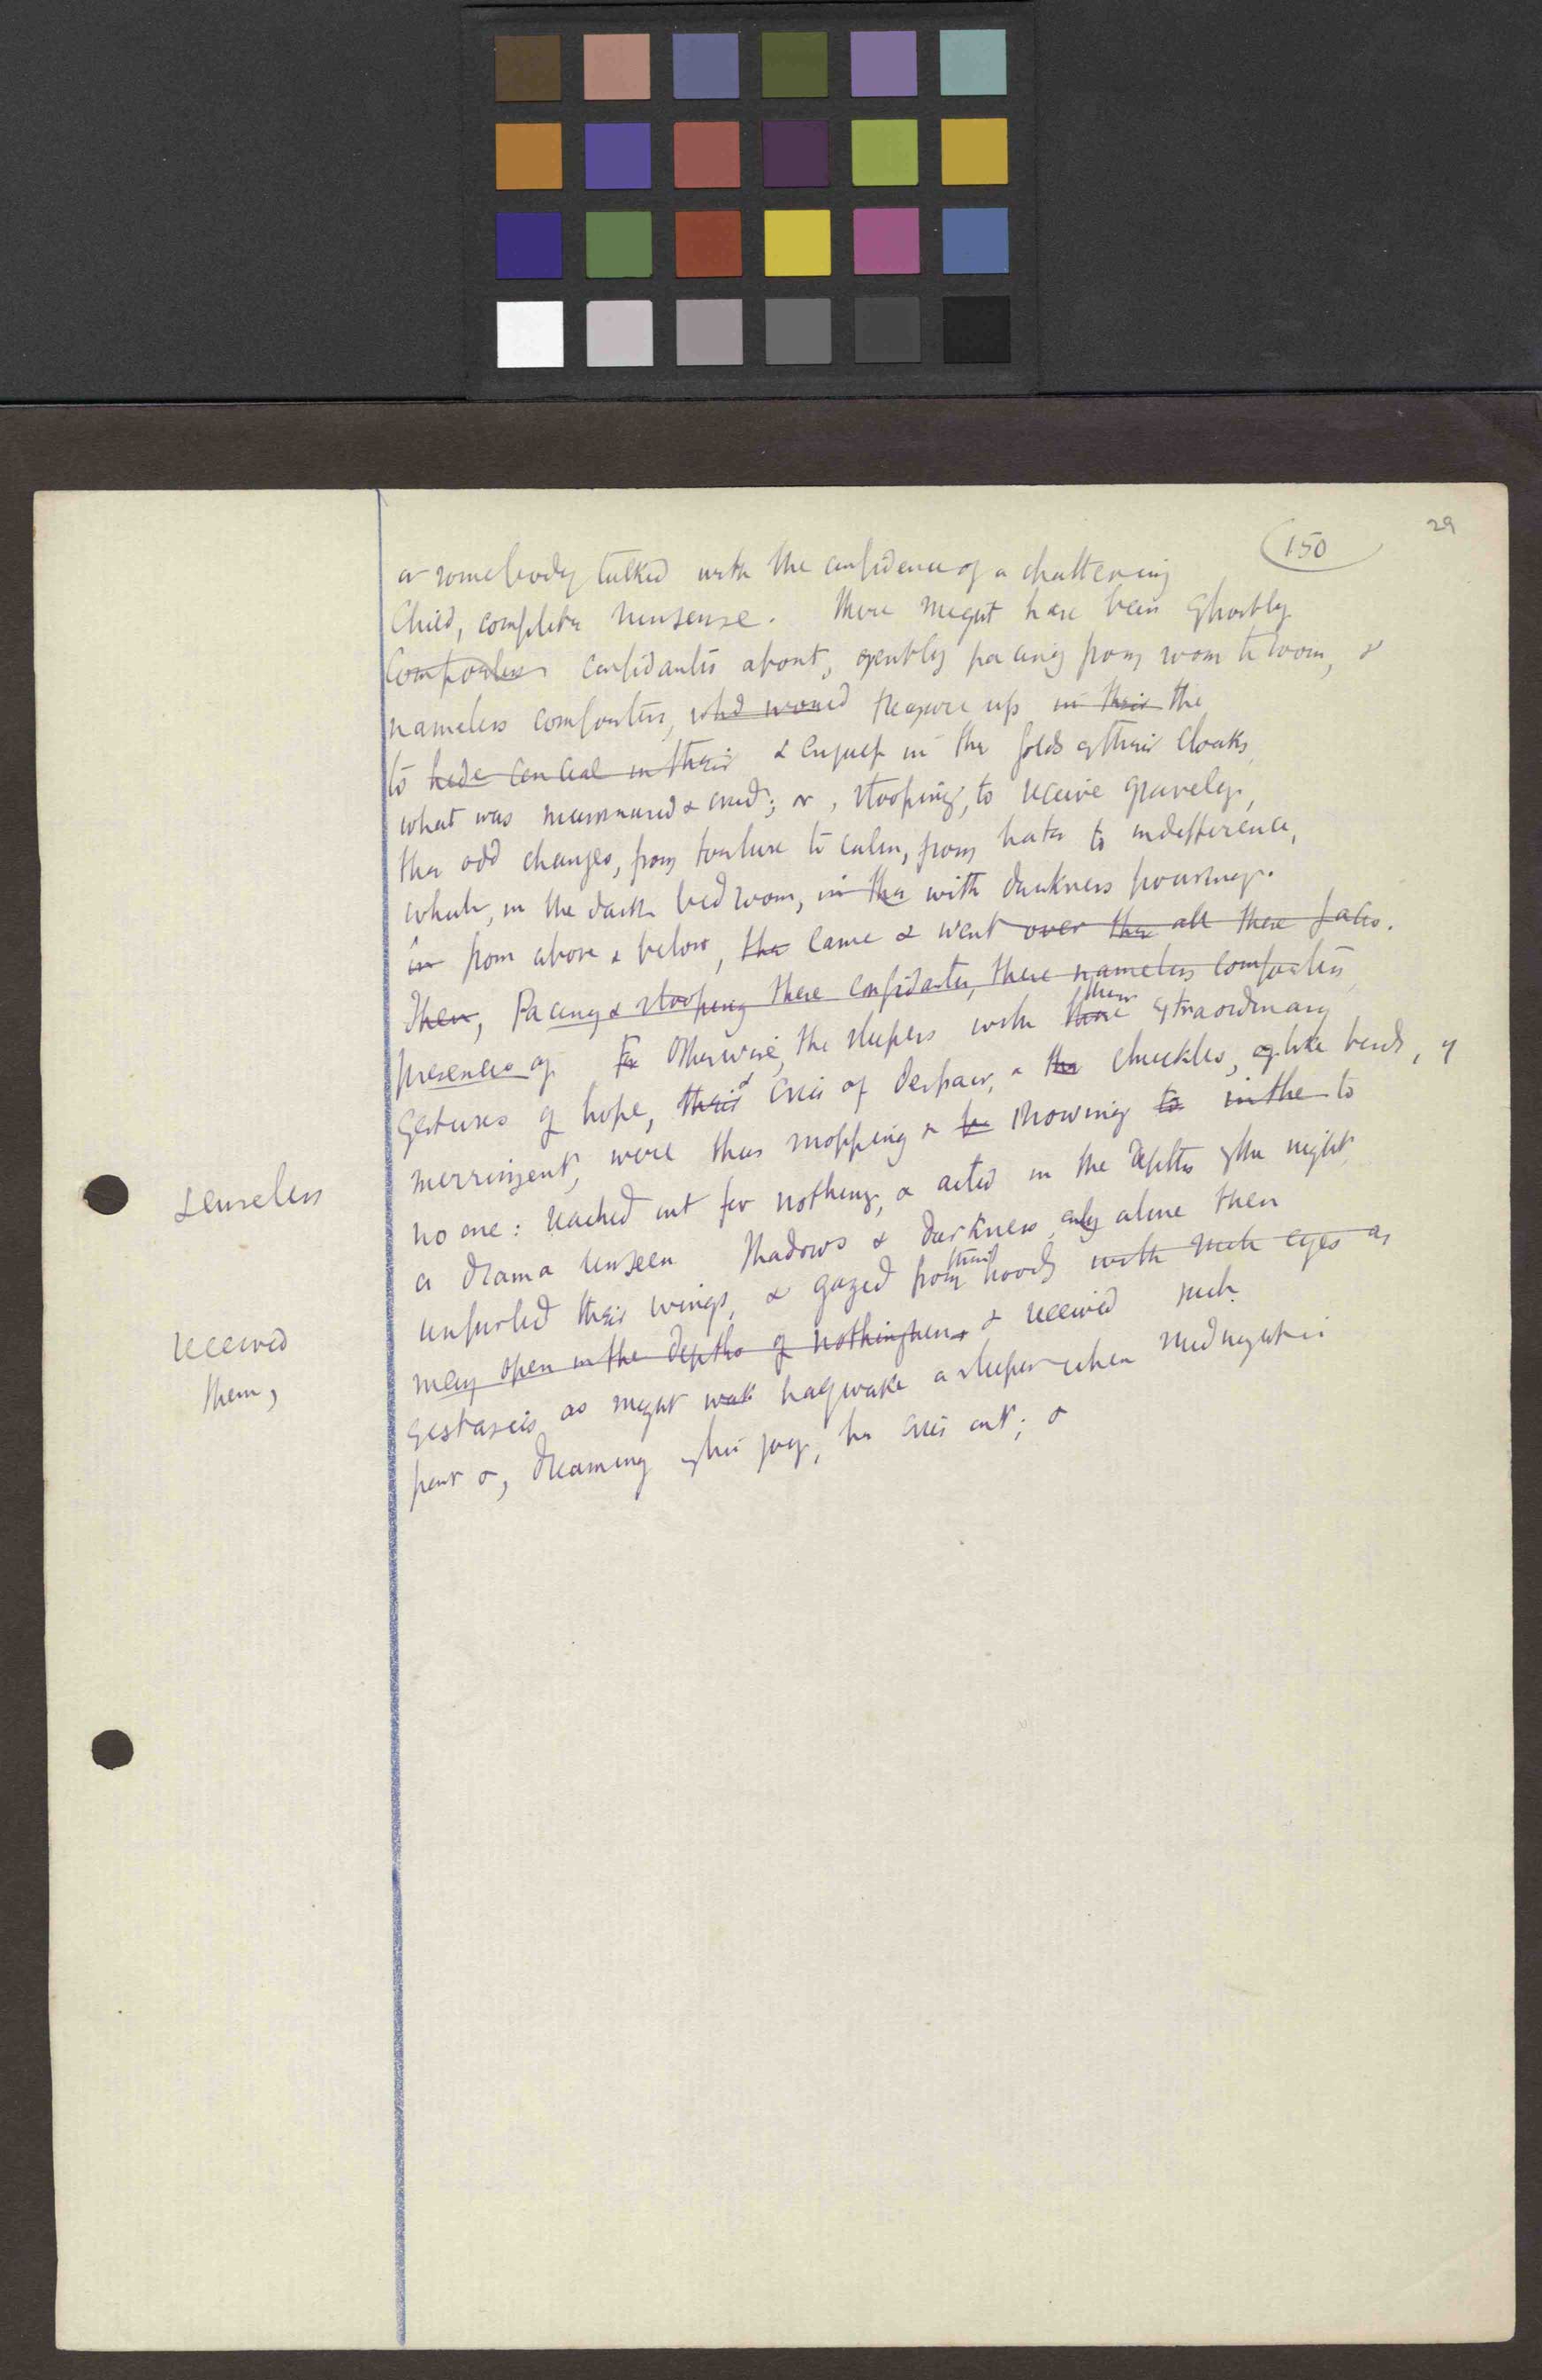 29
(150)
or somebody talked with the confidence of a chattering
child, complete nonsense. There might have been ghostly
comforters confidantes about, gently pacing from room to room, &
nameless comforters, who would treasure up in their the
to hide conceal in their & engulf in the folds of their cloaks,
what was murmured & cried; or, stooping, to receive gravely,
the odd changes, from torture to calm, from hate to indifference,
which, in the dark bedroom, in the with darkness pouring.
in from above & below, the came & went over the all these faces.
Then, Pacing & stooping these confidantes, these nameless comforters
presences of For Otherwise, the sleepers with their these extraordinary
gestures of hope, their & cries of despair, & the chuckles, of like birds, of
merriment, were thus mopping & mowing to in the to
senseless
no one: reached out for nothing, & acted in the depths of the night
a drama unseen Shadows & darkness, only alone then
unfurled their wings, & gazed from their hoods with such eyes as
received
them,
may open in the depths of nothingness & received such
gestures as might wake half wake a sleeper when midnight is
past &, dreaming of his joy, he cries out; &